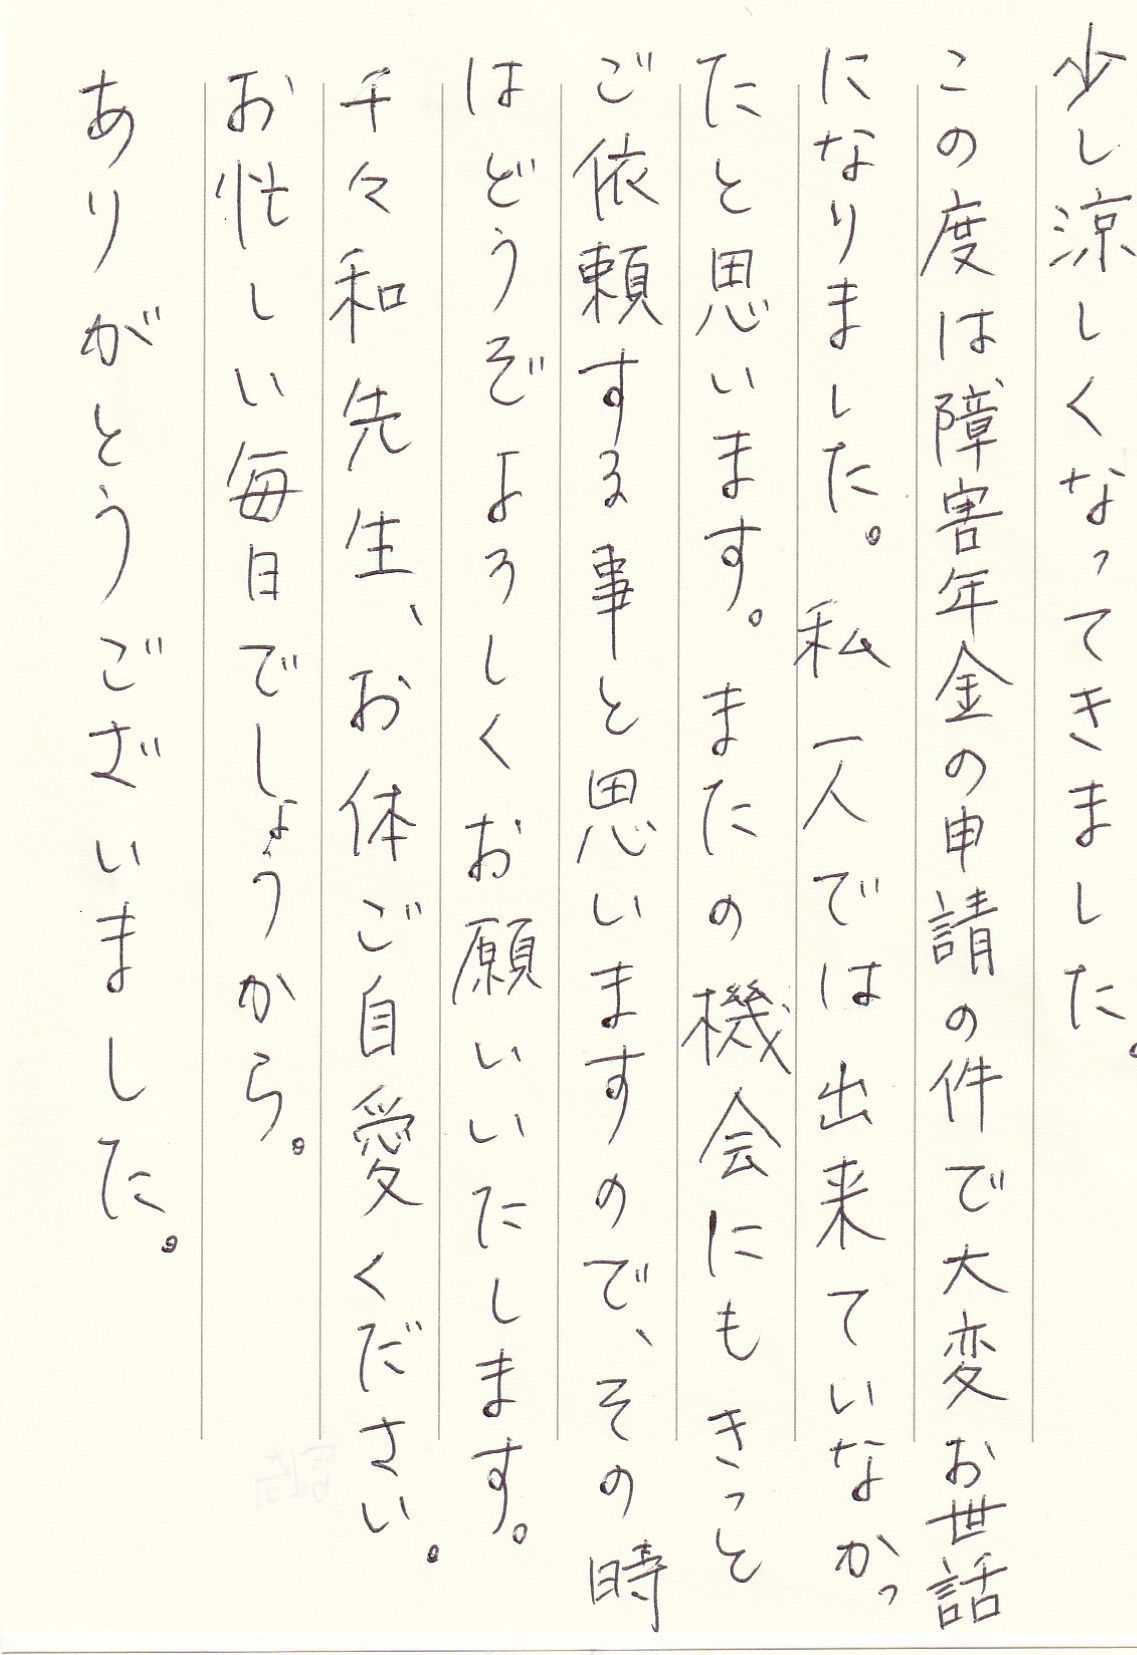 少し涼しくなってきました。
この度は障害年金の申請の件で大変お世話
になりました。私一人では出来ていなかっ
たと思います。またの機会にもきっと
ご依頼する事と思いますので、その時
はどうぞよろしくお願いいたします。
千々和先生、お体ご自愛ください。
お忙しい毎日でしょうから。
ありがとうございました。